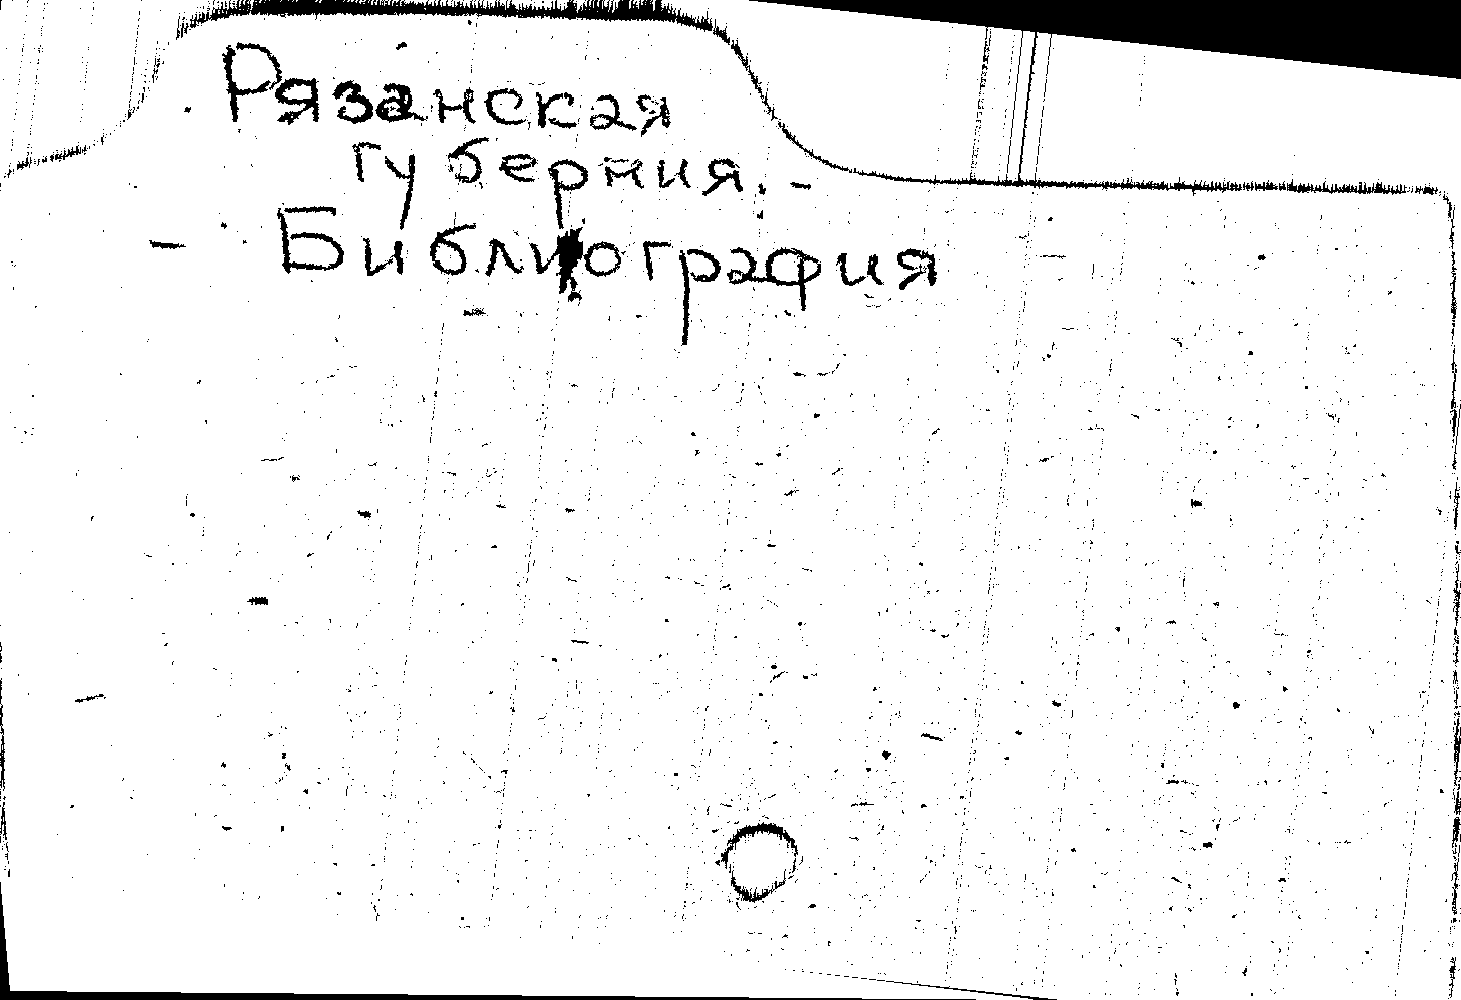 Рязанская
губерния. -
- Библиография